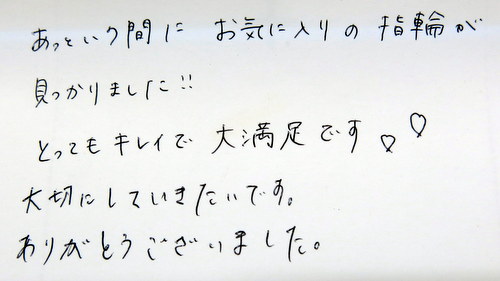 あっという間に お気に入りの 指輪が
見つかりました!!
とってもキレイで 大満足です♡♡
大切にしていきたいです。
ありがとうございました。